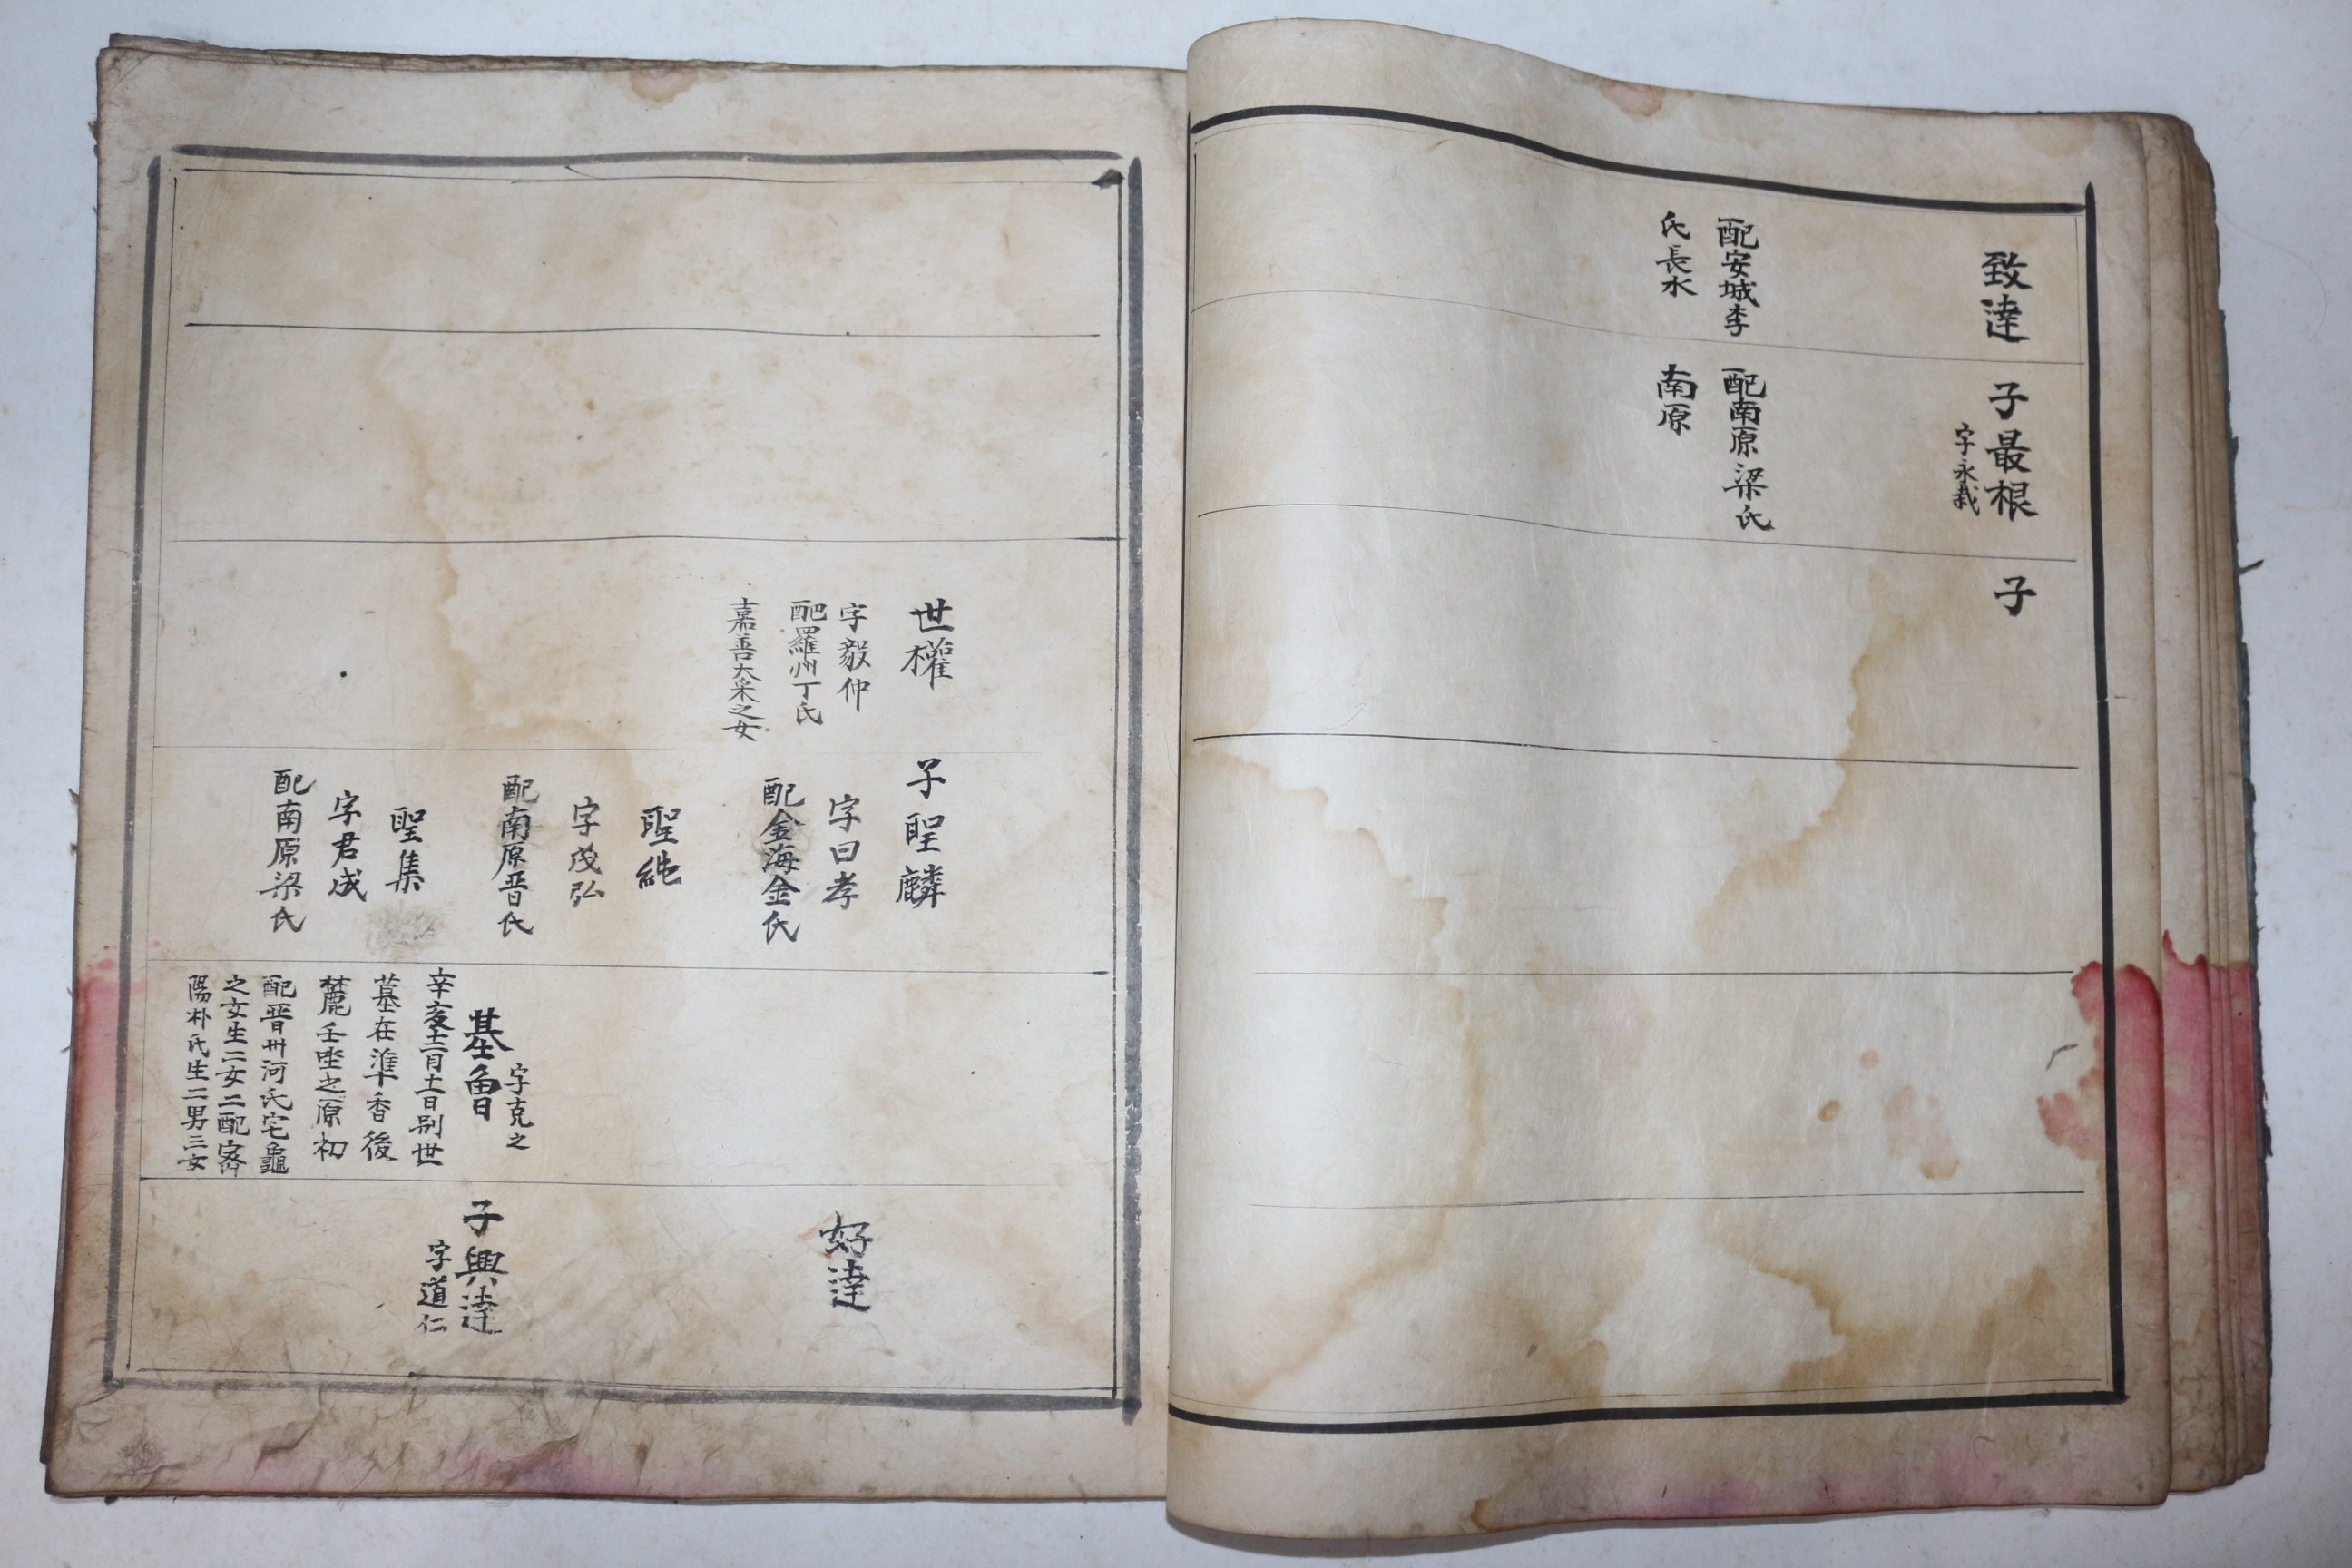 致達
配安城李
氏長水
子最根
字永栽
配南原梁氏
南原
子
世權
字毅仲
配羅州丁氏
嘉善大采之女
子聖麟
字曰孝
配金海金氏
聖純
字茂弘
配南原晋氏
聖集
字君成
配南原梁氏
字克之
基魯
辛亥十二月十一日別世
墓在準香後
麓壬坐之原初
配晋州河氏宅龜
之女生二女二配密
陽朴氏生二男三女
好達
子興達
字道仁